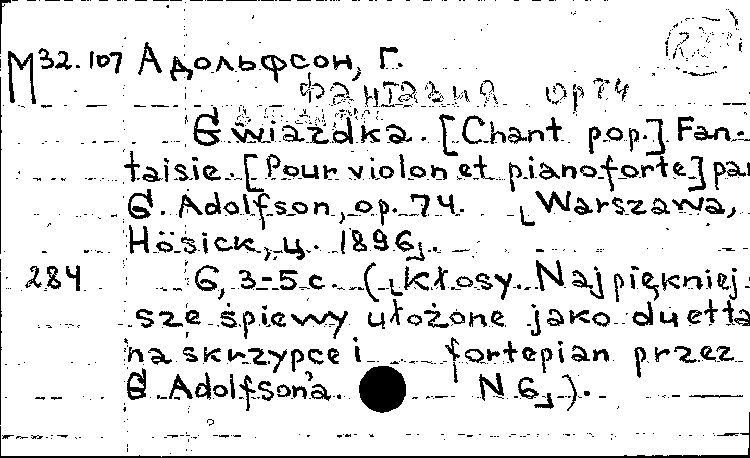 М 32.107 Адольфсон, Г.
Фантазия op 74
Gwiazdka. [Chant pop.] Fan-
taisie. [Pour violon et pianoforte] par
G. Adolfson, op. 74. [Warszawa,
Hösick, ц. 1896].
284 6, 3-5 c. ([Kłosy. Najpiękniej-
sze śpiewy ułożone jako duetta
na skrzypce i fortepian przez
G. Adolfson'a. N 6]).